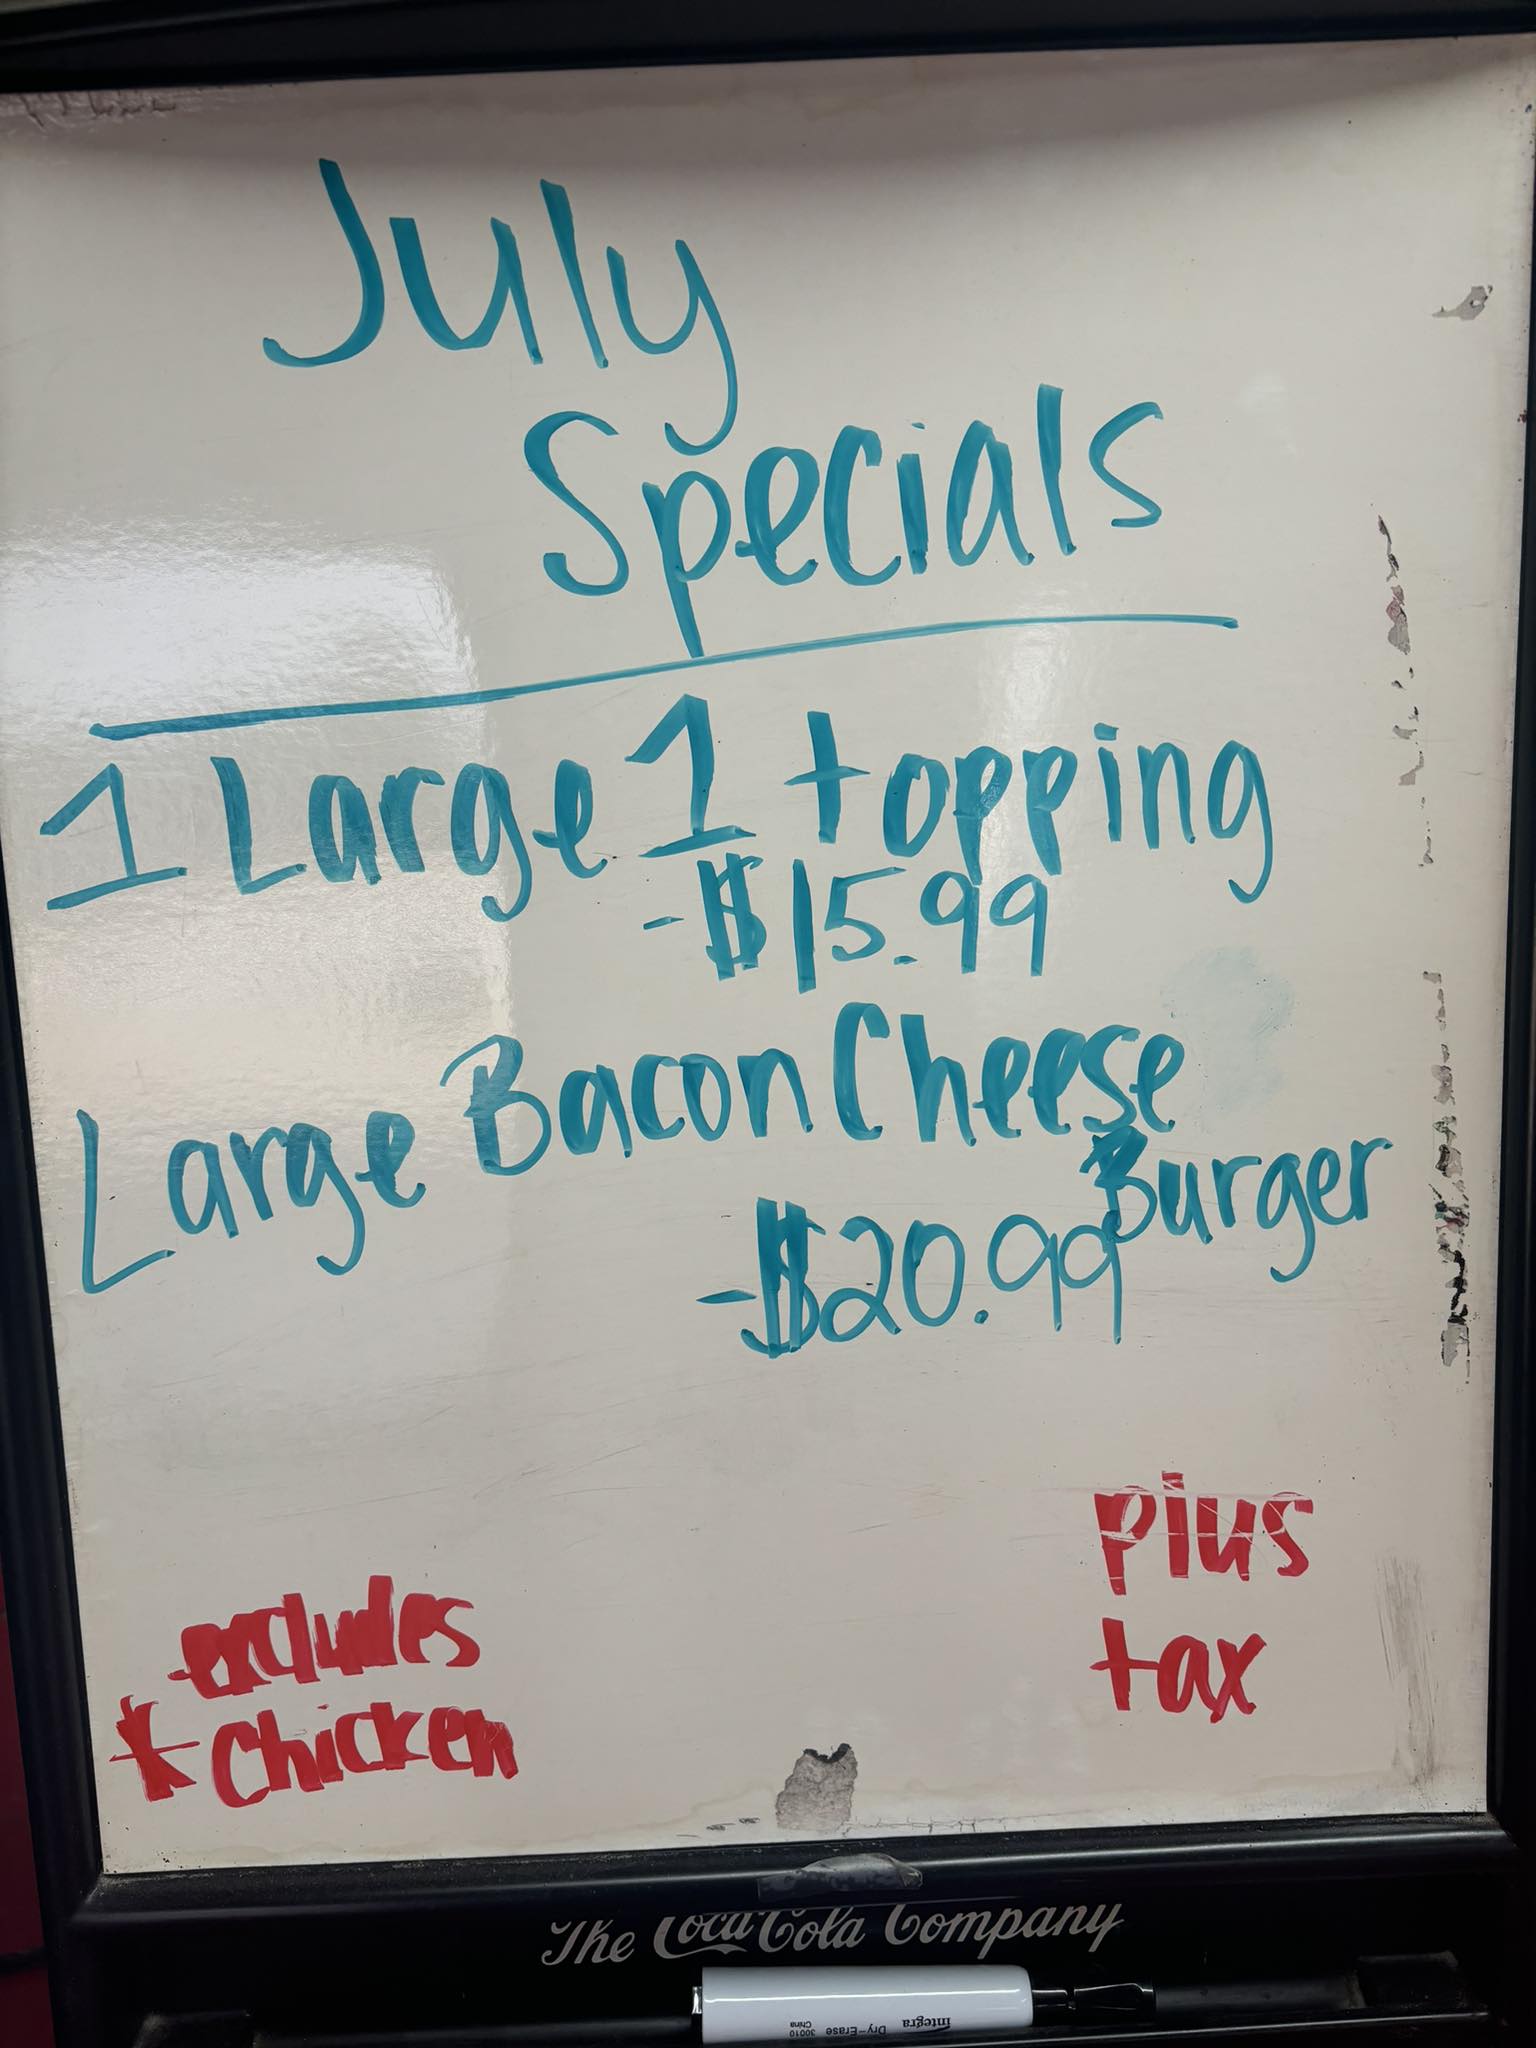 July
Specials
1 Large 1 topping
-$15.99
Large Bacon Cheese
Burger
-$20.99
plus
tax
excludes
* Chicken
The Coca-Cola Company
integra Dry-Erase 30010
China